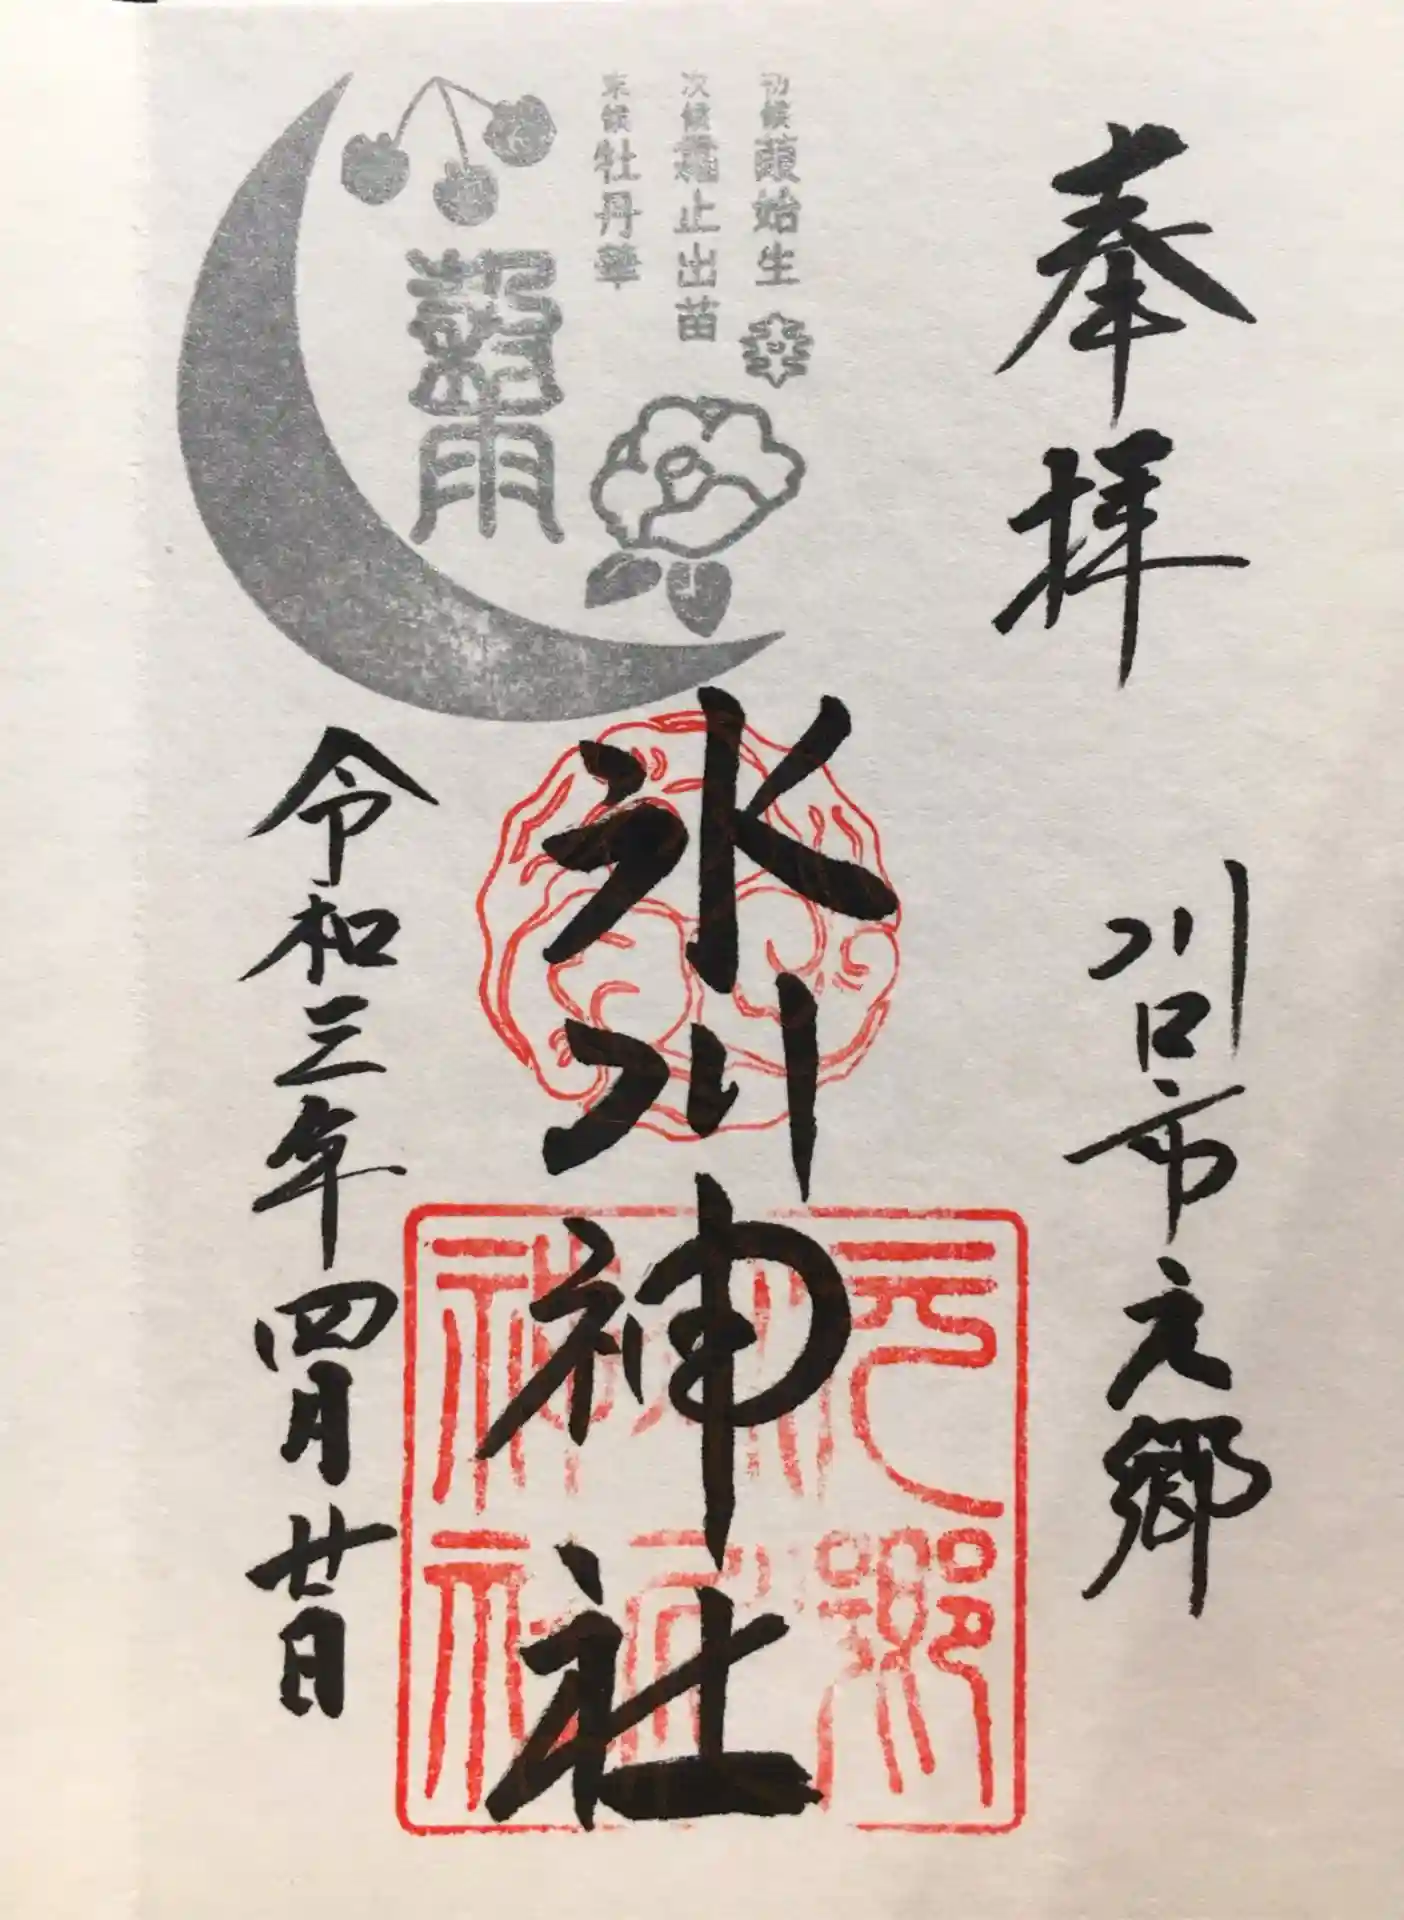 奉拝
川口市元郷
初候葭始生
次候霜止出苗
末候牡丹華
穀雨
氷川神社
元郷氷川神社
令和三年四月廿日